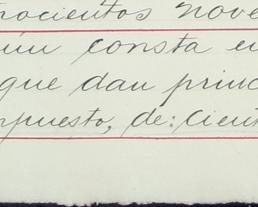 rocientos nove
ún consta en
que dan princ
puesto, de: Cient